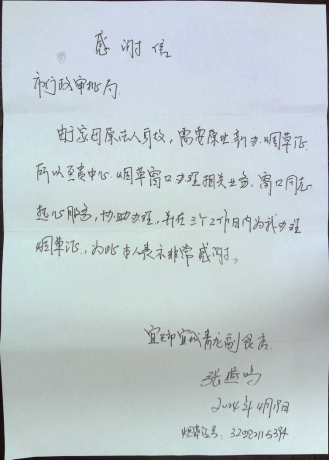 感谢信
市行政审批局
由于家因原法人身故，需要原业新办烟草证
所以至贵中心烟草窗口办理相关业务，窗口同志
热心服务，协助办理，并在三个工作日内为我办理
烟草证，为此本人表示非常感谢。
宜城青龙副食店
张
2024年4月19日
烟草证号：